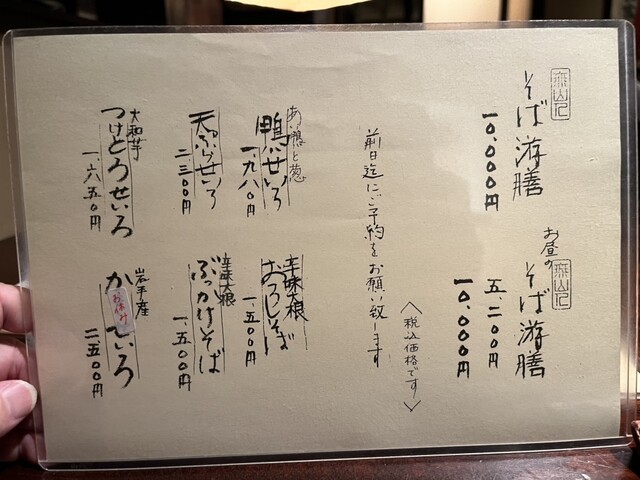 そば游膳
一〇,〇〇〇円
お昼の
そば游膳
五,二〇〇円
一〇,〇〇〇円
前日迄にご予約をお願い致します
〈税込価格です〉
あい鴨と葱
鴨せいろ
一,九八〇円
辛味大根
おろしそば
一,五〇〇円
天ぷらせいろ
二,三〇〇円
辛味大根
ぶっかけそば
一,五〇〇円
大和芋
つけとろせいろ
一,六五〇円
岩手産
お休み
二,五〇〇円